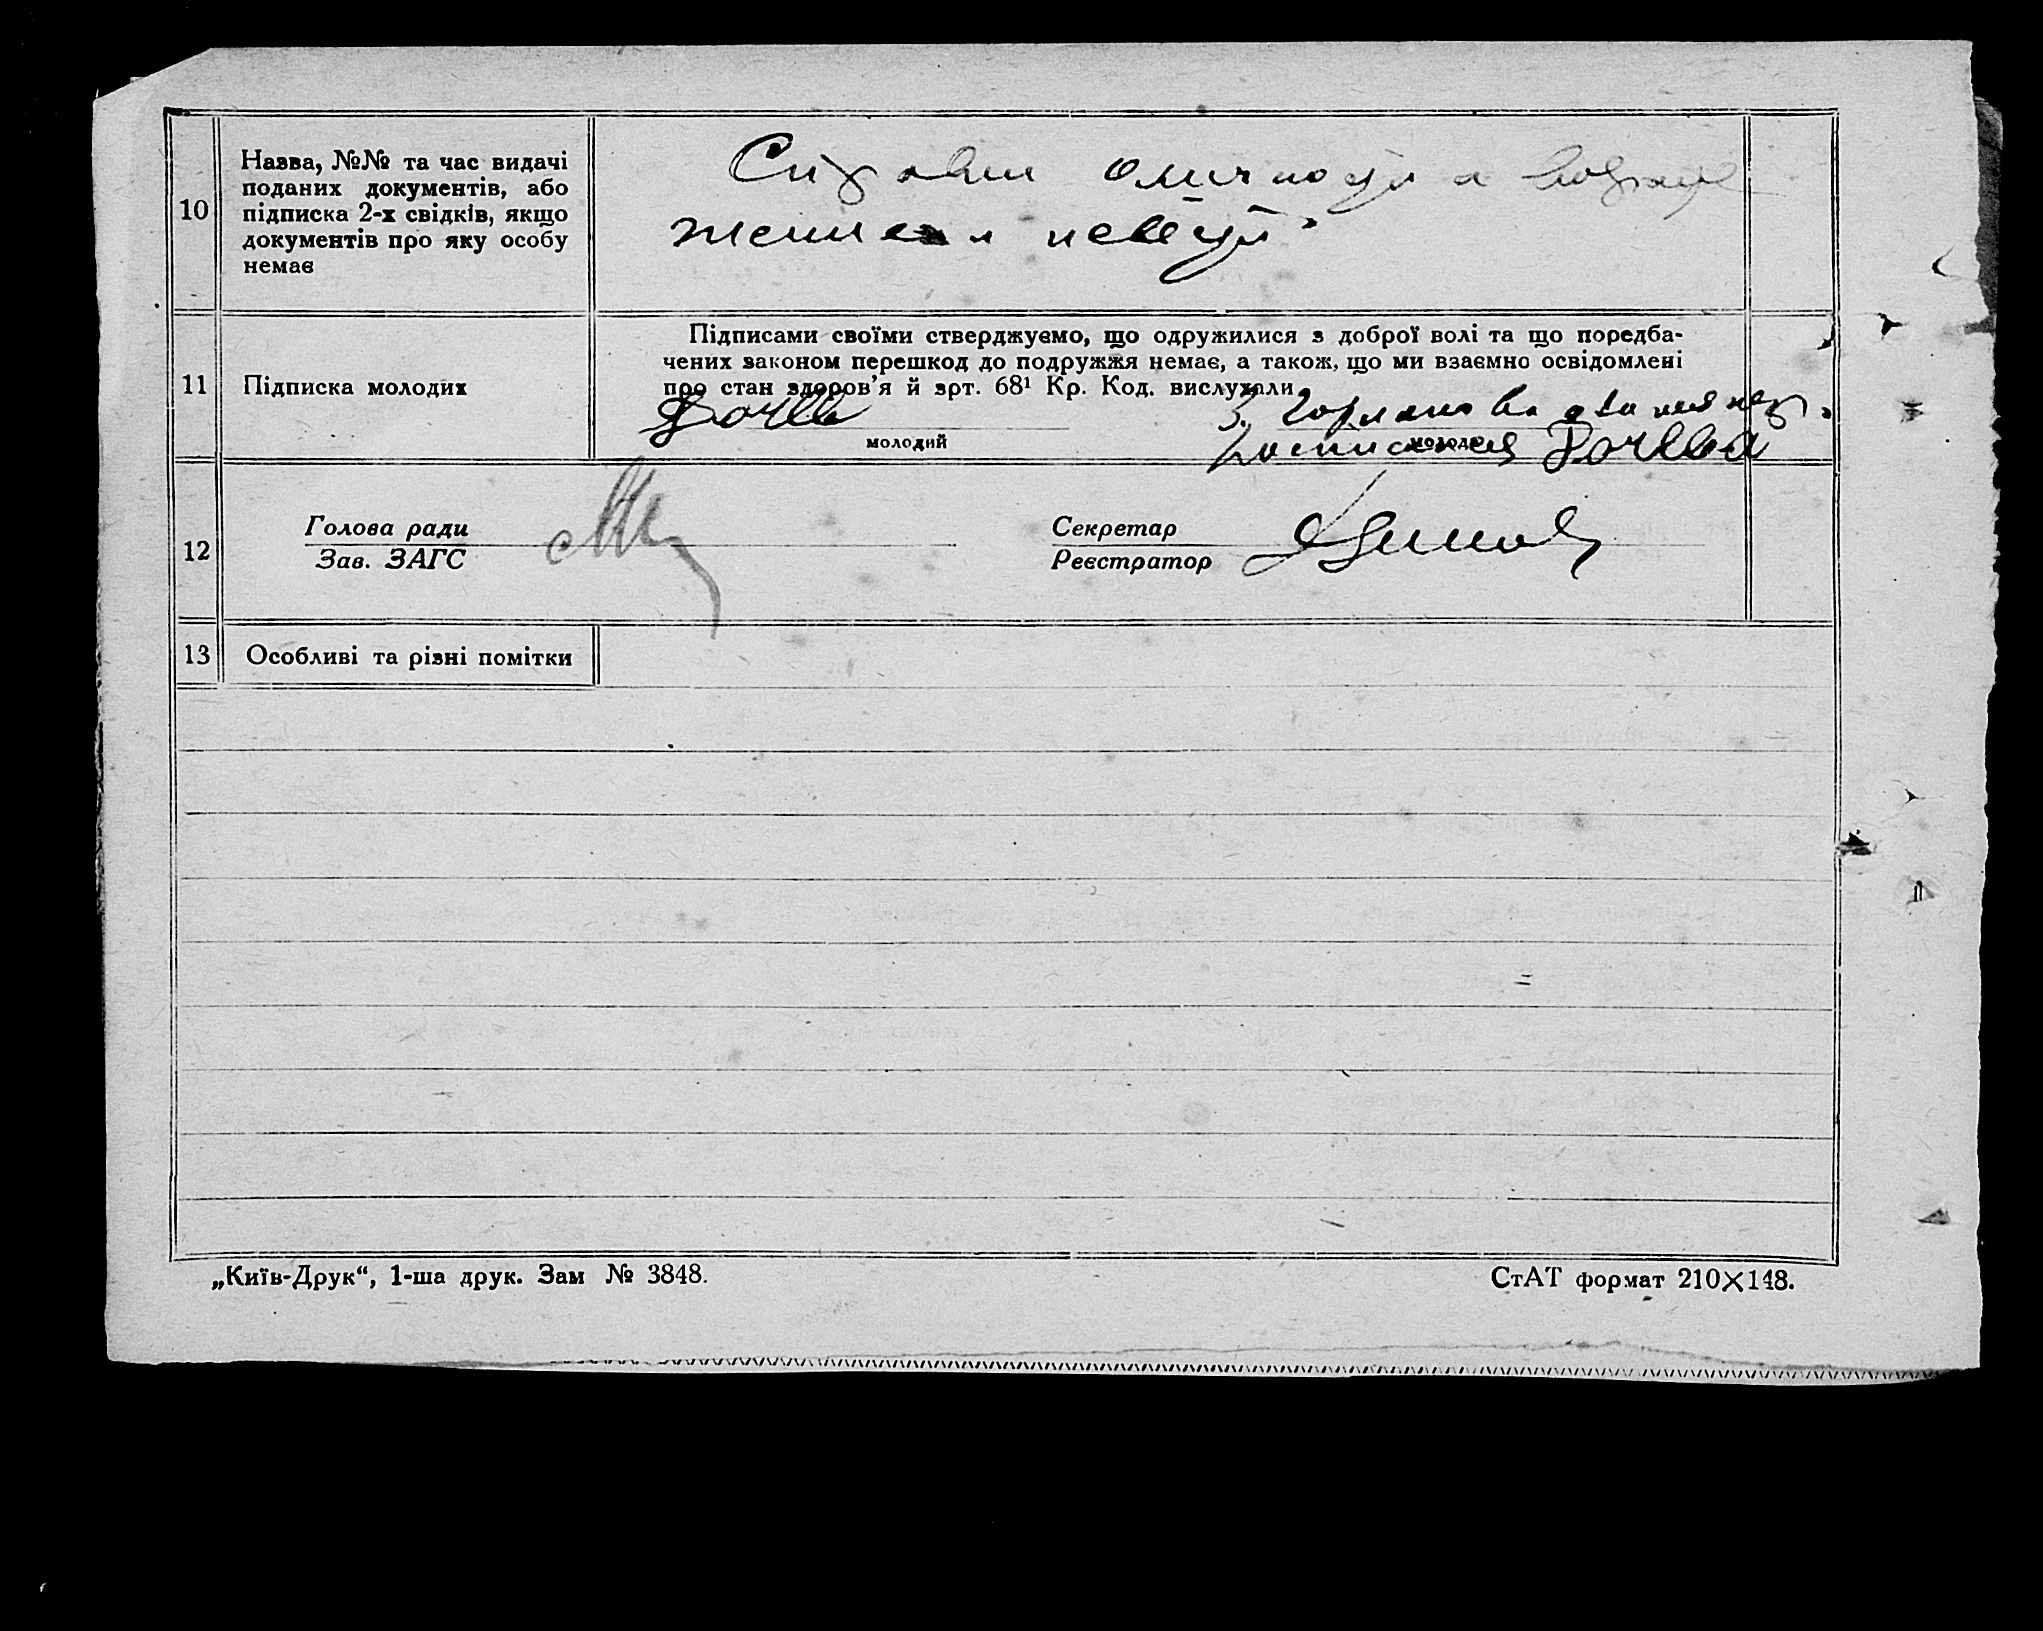 10
Назва, №№ та час видачі
поданих документів, або
підписка 2-х свідків, якщо
документів про яку особу
немає
жениха и невесты
11
Підписка молодих
Підписами своїми стверджуємо, що одружилися з доброї волі та що поредба-
чених законом перешкод до подружжя немає, а також, що ми взаємно освідомлені
про стан здоров'я й зрт. 68¹ Кр. Код. вислухали
молодий
молода
12
Голова ради
Зав. ЗАГС
Секретар
Реєстратор
13
Особливі та різні помітки
„Київ-Друк“, 1-ша друк. Зам № 3848.
СтАТ формат 210×148.